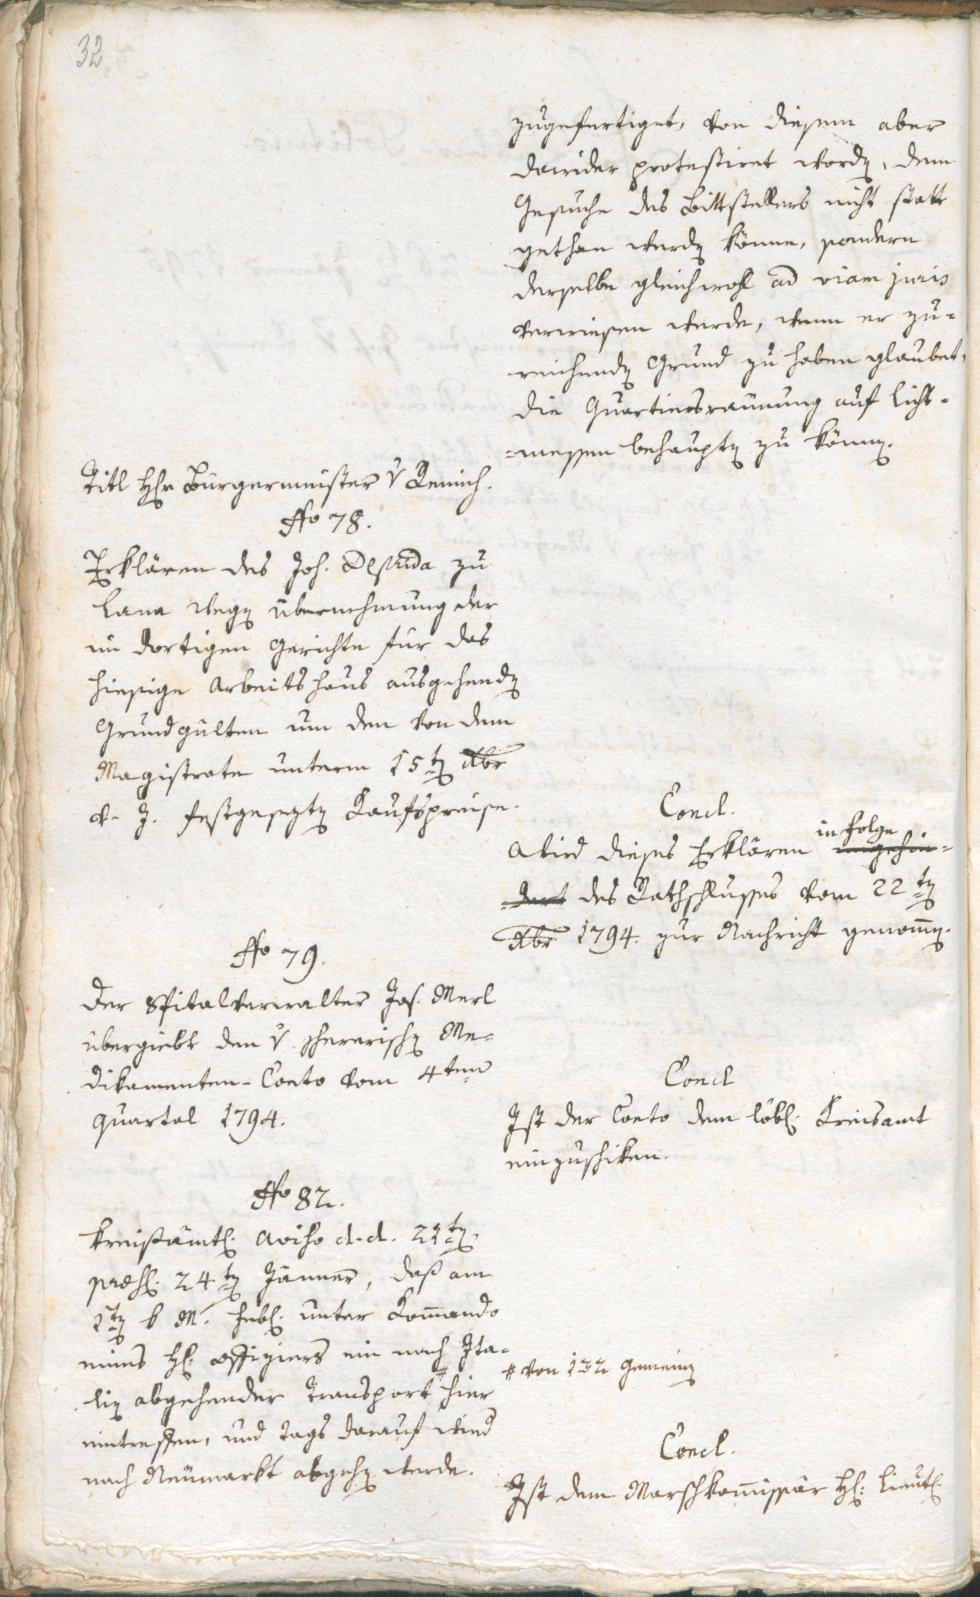 32
zugefertiget, von diesem aber
dawider protestiret word, dem
Gesuche des Bittstellers nicht statt
gethan werd könne, sondern
derselbe gleichwohl ad viam juris
verwiesen werde, wenn er zu-
reichend Grund zu haben glaubet,
die Quartiersräumung auf Licht-
=messen behaupt zu könn.
Titl Hr Bürgermeister v Remich.
No 78.
Erklären des Joh. zu
Lana weg übernehmung der
im dortigen Gerichte für das
hiesige Arbeitshaus ausgehend
Grundgülten um den von dem
Magistrate unterm 15t Xbr
v. J. festgesezt Kaufspreise.
Concl.
Wird dieses Erklären in Folge
des Rathschlusses vom 22t
Xbr 1794. zur Nachricht genom̅.
No 79.
Der Spitalverwalter Jos. Merl
übergiebt den v. Me-
dikamenten-Conto vom 4ten
Quartal 1794.
Concl
Ist der Conto dem löbl. Kreisamt
einzuschiken.
No 82.
Kreisämtl. Aviso d.d. 22t
praes. 24t Jänner, daß am
1t k. M. Febr. unter Kom̅ando
eines H. Offiziers ein nach Ita-
lien abgehender Transport # hier
eintreffen, und Tags darauf wied
nach Neumarkt abgeh werde.
# von 132 Gemein
Concl.
Ist dem Marschkom̅issär H. Lieut.